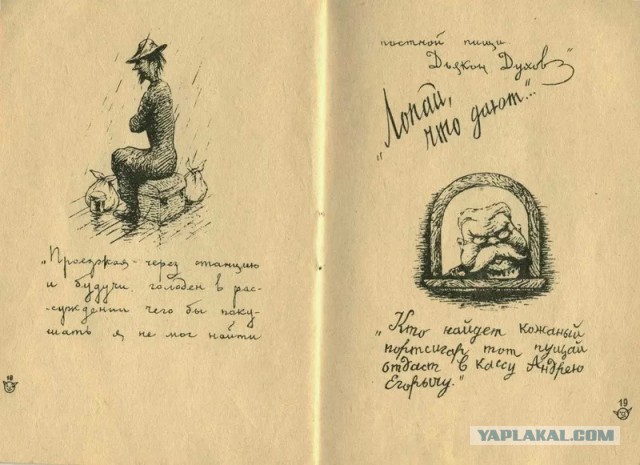 „Проезжая через станцию
и будучи голоден в рас-
суждении чего бы поку-
шать я не мог найти
18
постной пищи.
Дьякон Духов"
„Лопай,
что дают"...
„Кто найдет кожаный
портсигар, тот пущай
отдаст в кассу Андрею
Егорычу."
19
YAPLAKAL.COM